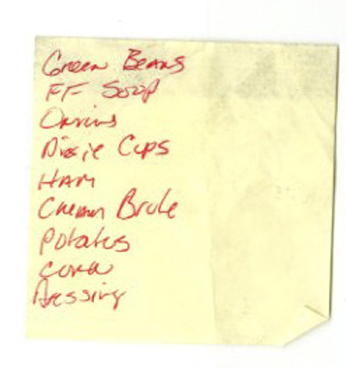 Green Beans
FF Soup
Onions
Dixie Cups
HAM
Brule
Potatos
Corn
Dressing